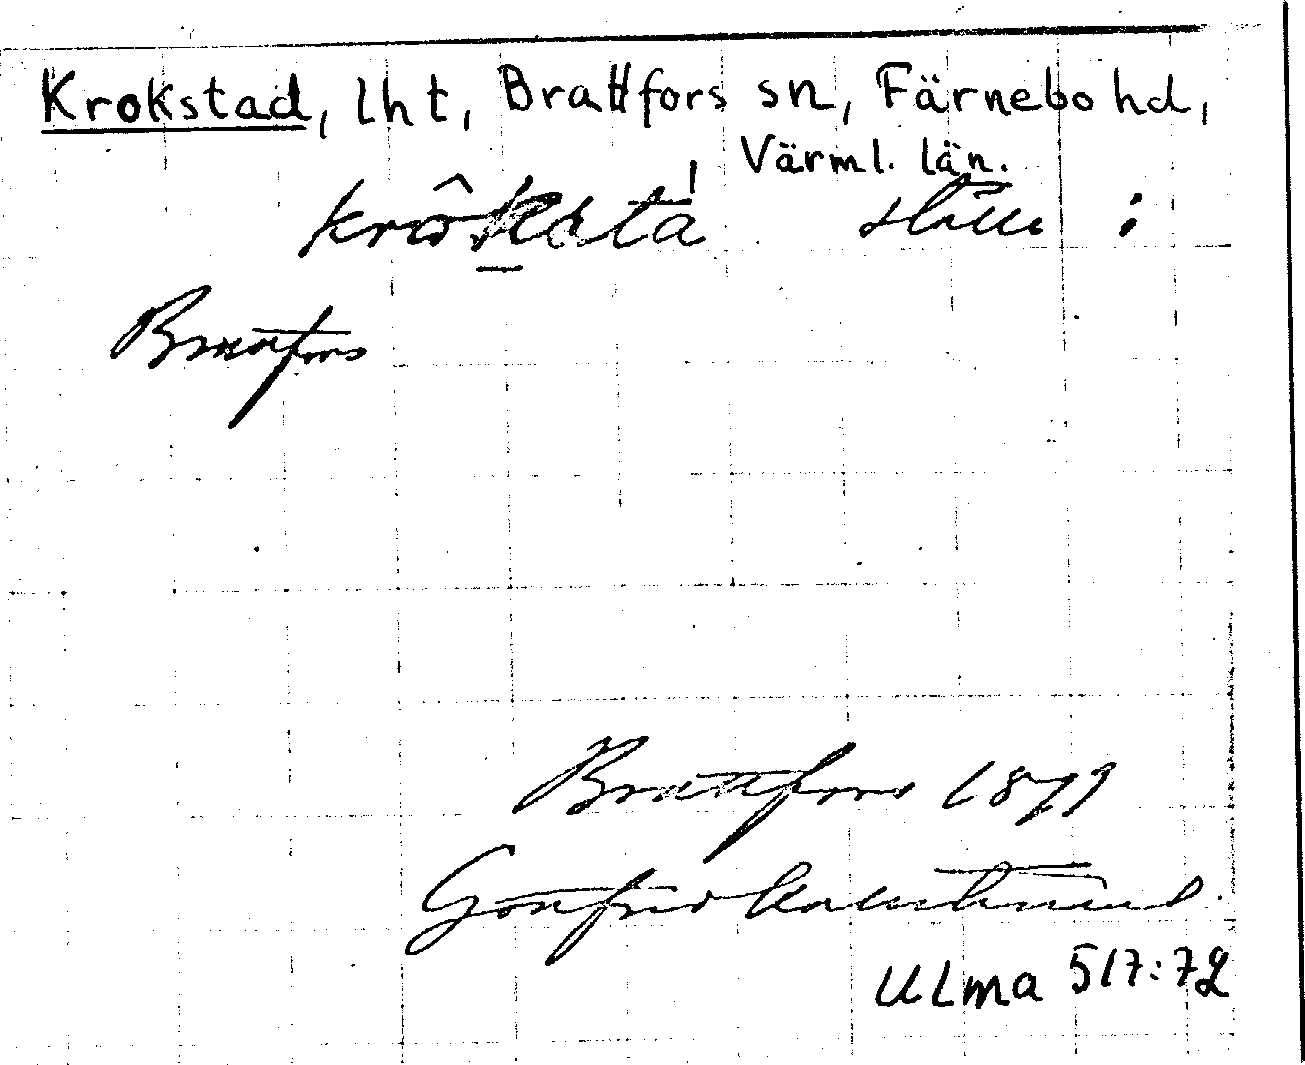 Krokstad, lht, Brattfors sn, Färnebo hd,
Värml. län.
ställe i
Brattfors
Brattfors 1879
Gottfrid Kallstenius
ULMA 517:72